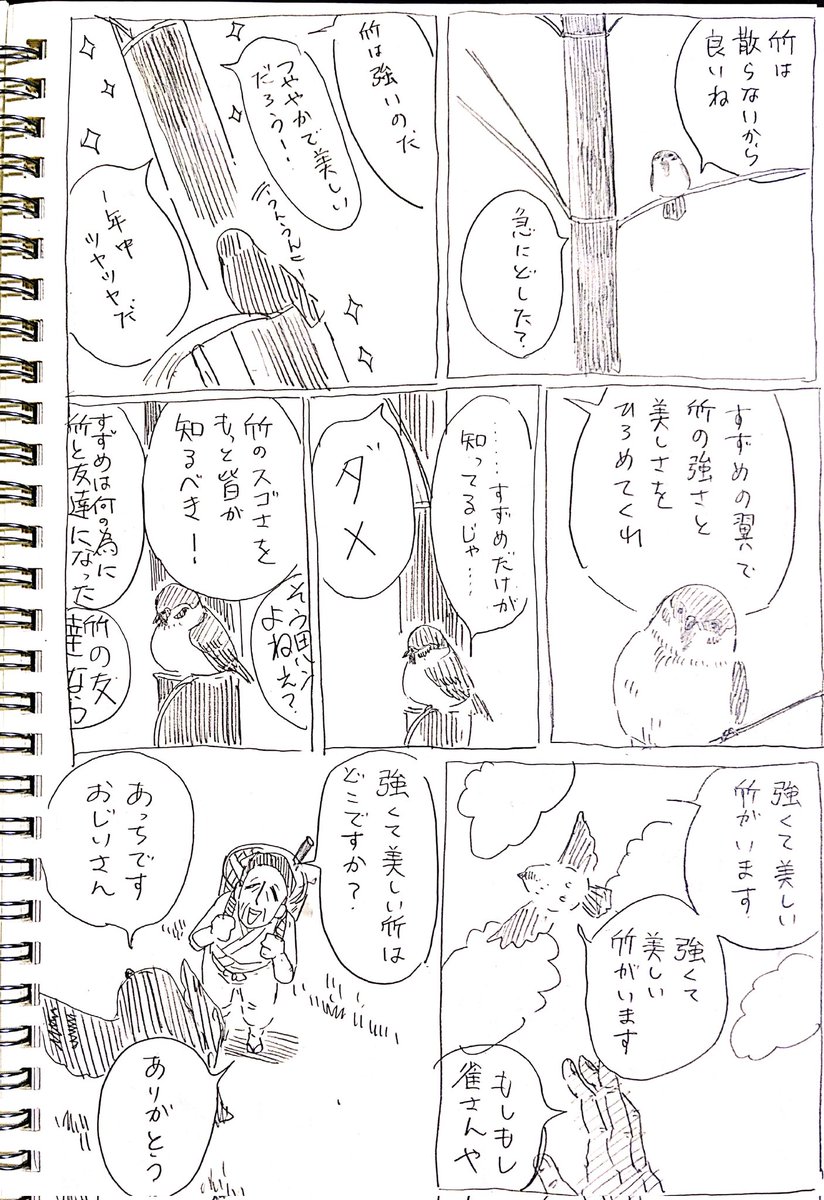 竹は
散らないから
良いね
急にどした？
竹は強いのだ
つややかで美しい
だろう！
一年中
ツヤツヤだ
すずめの翼で
竹の強さと
美しさを
ひろめてくれ
……すずめだけが
知ってるじゃ……
ダメ
そう思う
よねぇ？
竹のスゴさを
もっと皆が
知るべき！
すずめは何の為に
竹と友達になった
竹の友
達なら
強くて美しい
竹がいます
強くて
美しい
竹がいます
もしもし
雀さんや
強くて美しい竹は
どこですか？
あっちです
おじいさん
ありがとう